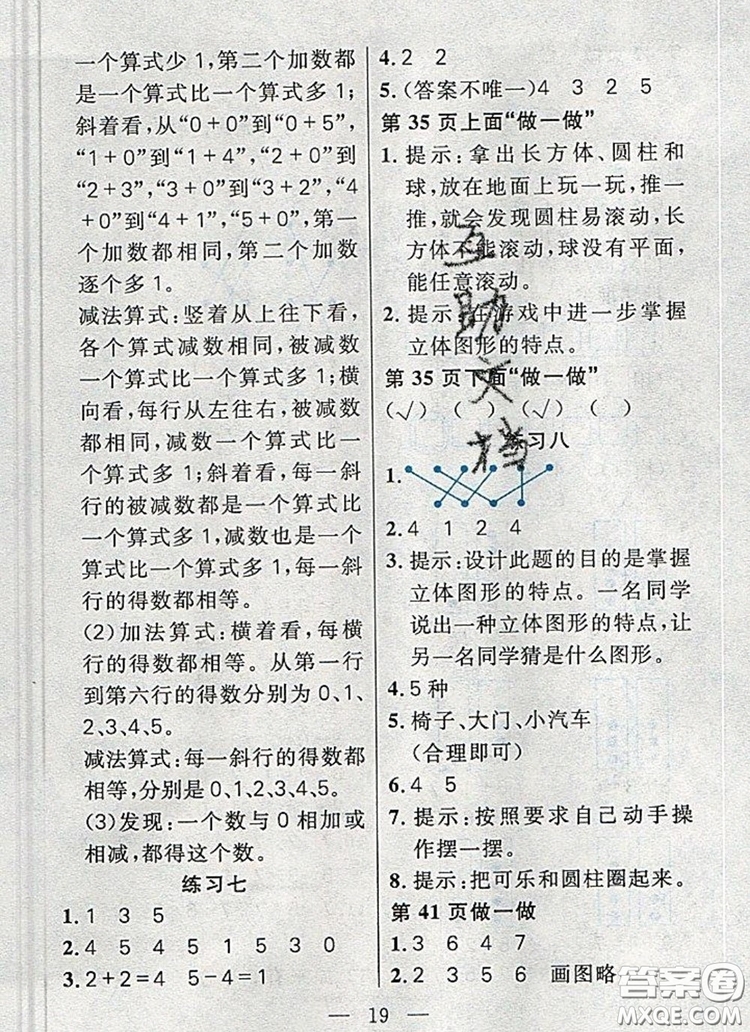 一个算式少1,第二个加数都
是一个算式比一个算式多1;
斜着看,从“0+0”到“0+5”,
“1+0”到“1+4”,“2+0”到
“2+3”,“3+0”到“3+2”,“4
+0”到“4+1”,“5+0”,第一
个加数都相同,第二个加数
逐个多1。
减法算式:竖着从上往下看,
各个算式减数相同,被减数
一个算式比一个算式多1;横
向看,每行从左往右,被减数
相同,减数一个算式比一个
算式多1;斜着看,每一斜
行的被减数都是一个算式比
一个算式多1,减数也是一个
算式比一个算式多1,每一斜
行的得数都相等。
(2)加法算式:横着看,每横
行的得数都相等。从第一行
到第六行的得数分别为0、1、
2、3、4、5。
减法算式:每一斜行的得数都
相等,分别是0、1、2、3、4、5。
(3)发现:一个数与0相加或
相减,都得这个数。
练习七
1.1 3 5
2.4 5 4 5 1 5 3 0
3.2+2=4 5-4=1
4.2 2
5.(答案不唯一)4 3 2 5
第35页上面“做一做”
1.提示:拿出长方体、圆柱和
球,放在地面上玩一玩,推一
推,就会发现圆柱易滚动,长
方体不能滚动,球没有平面,
能任意滚动。
2.提示:在游戏中进一步掌握
立体图形的特点。
第35页下面“做一做”
(√) ( ) (√) ( )
练习八
1.
2.4 1 2 4
3.提示:设计此题的目的是掌握
立体图形的特点。一名同学
说出一种立体图形的特点,让
另一名同学猜是什么图形。
4.5种
5.椅子、大门、小汽车
(合理即可)
6.4 5
7.提示:按照要求自己动手操
作摆一摆。
8.提示:把可乐和圆柱圈起来。
第41页做一做
1.3 6 4 7
2.2 3 5 6 画图略
— 19 —
互助文档
答案圈
MXQE.COM